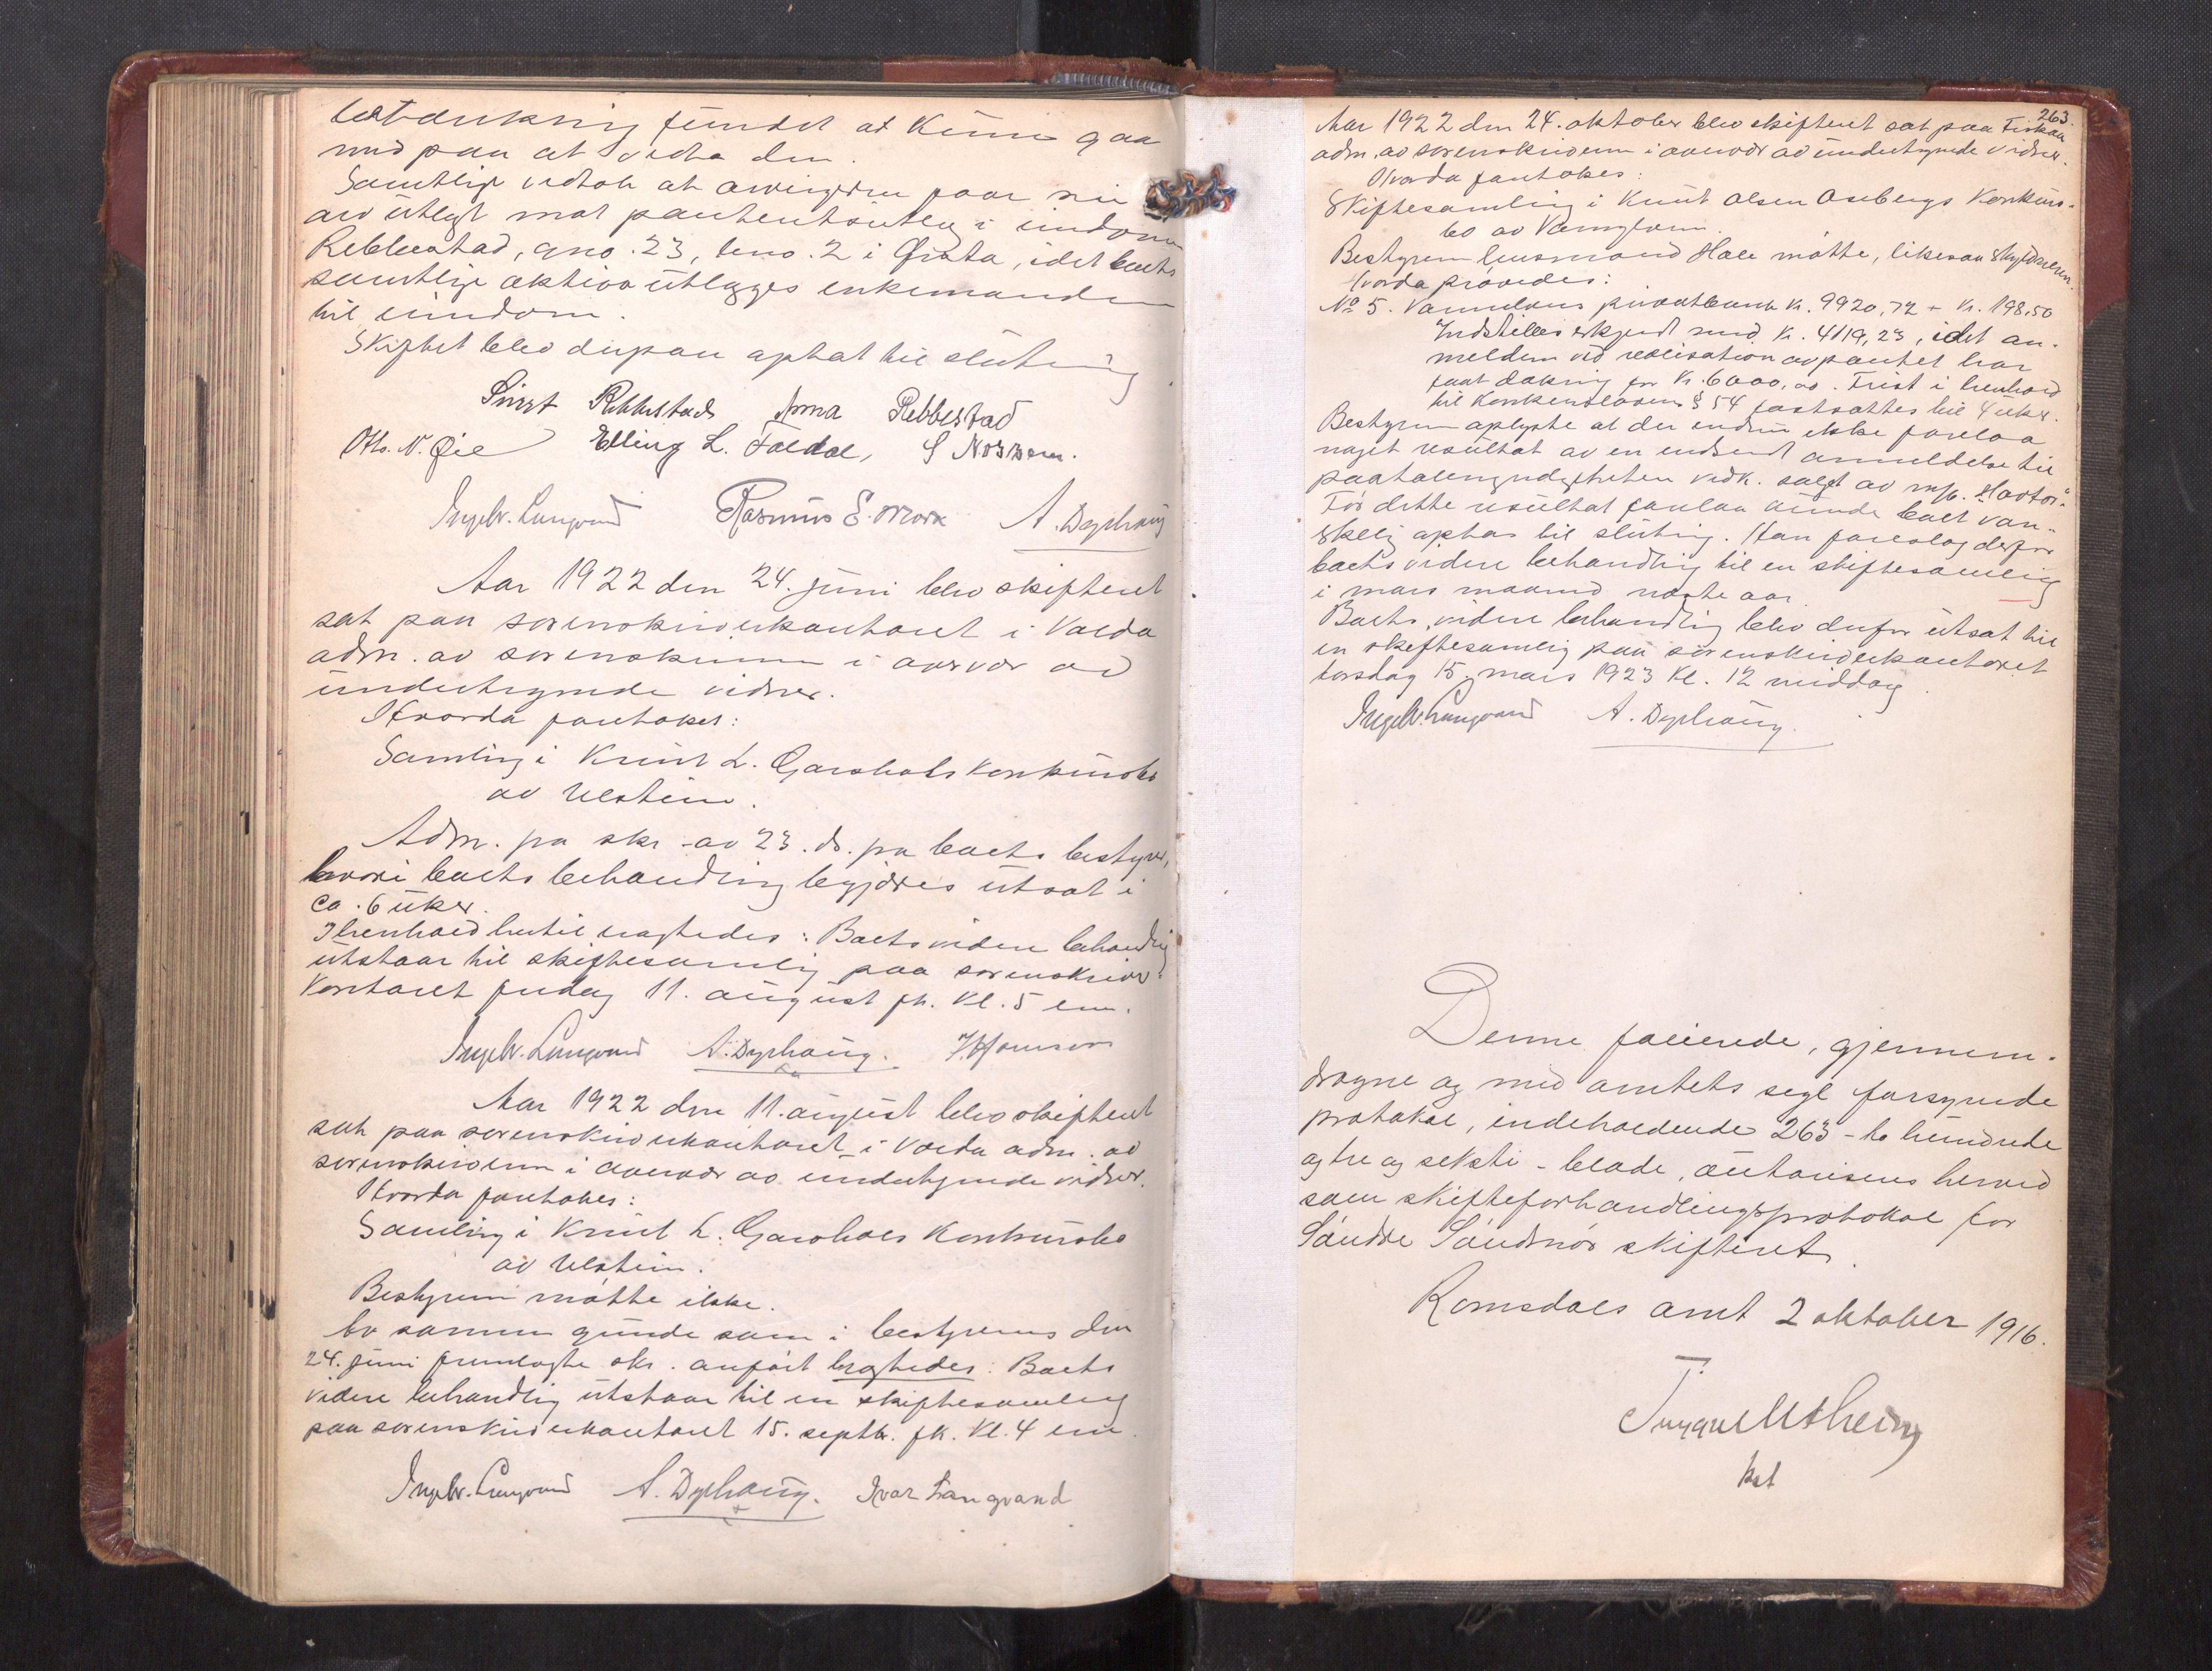 fundet at kunne gaa
med paa at vedta den.
Samtlige vedtok at arvingerne faar sin
arv utlagt mot panteutsættelse i eiendom
Rebbestad, gno. 23, bno. 2 i Ørsta, idet boets
samtlige aktiva utlægges enkemanden
til eiendom.
Skiftet blev derpaa optat til slutning.
Sivert Rebbestad Anna Rebbestad
Ols. N. Øie Elling L. Foldal, S Nossen.
Ingebr. Langvand Rasmus E. Mork A. Dyphaug
Aar 1922 den 24. juni blev skifteret
sat paa sorenskriverkontoret i Volda
adm. av sorenskriveren i overvær av
undertegnede vidner.
Hvorda foretokes:
Samling i Knut L. Garshols konkursbo
av Ulstein.
Adm. fra skr. av 23. ds. fra boets bestyrer,
hvori boets behandling begjæres utsat i
ca. 6 uker.
I henhold hertil vagtedes: Boets videre behandling
utstaar til skiftesamling paa sorenskriver-
kontoret fredag 11. august fk. kl. 5 em.
Ingebr. Langvand A. Dyphaug.
Aar 1922 den 11. august blev skifteret
sat paa sorenskriverkontoret i Volda adm. av
sorenskriveren i overvær av undertegnede vidner.
Hvorda foretokes:
Samling i Knut L. Garshols konkursbo
av Ulstein.
Bestyreren møtte ikke.
Av samme grunde som i bestyrerens den
24. juni fremlagte skr. anført vagtedes: Boets
videre behandling utstaar til en skiftesamling
paa sorenskriverkontoret 15. septbr. fk. kl. 4 em.
Ingebr. Langvand A. Dyphaug. Ivar Langvand
263.
Aar 1922 den 24. oktober blev skifteret sat paa Fiskaa
adm. av sorenskriveren i overvær av undertegnede vidner.
Hvorda foretokes:
Skiftesamling i Knut Olsen Osebergs konkurs-
bo av Vanylven.
Bestyreren lensmand Hole møtte, likesaa skyldneren.
Hvorda prøvedes:
No 5. Vanylvens privatbank kr. 9920,72 + kr. 198,50
Indstilles erkjendt med kr. 4119,23, idet an-
melderen ved realisation av pantet har
faat dækning for kr. 6000,00. Frist i henhold
til konkurslovens § 54 fastsattes til 4 uker.
Bestyreren oplyste at der endnu ikke forelaa
noget resultat av en indsendt anmeldelse til
paatalemyndigheten vedk. salget av m/k. "Havtor".
Før dette resultat forelaa kunde boet van-
skelig optas til slutning. Han foreslog derfor
boets videre behandling til en skiftesamling
i mars maaned næste aar.
Boets videre behandling blev derfor utsat til
en skiftesamling paa sorenskriverkontoret
torsdag 15. mars 1923 kl. 12 middag.
Ingebr. Langvand A. Dyphaug.
Denne folierede, gjennem-
dragne og med amtets segl forsynede
protokol, indeholdende 263 - to hundrede
og tre og seksti - blade, autoriseres herved
som skifteforhandlingsprotokol for
Søndre Søndmør skifteret.
Romsdals amt 2 oktober 1916.
kst